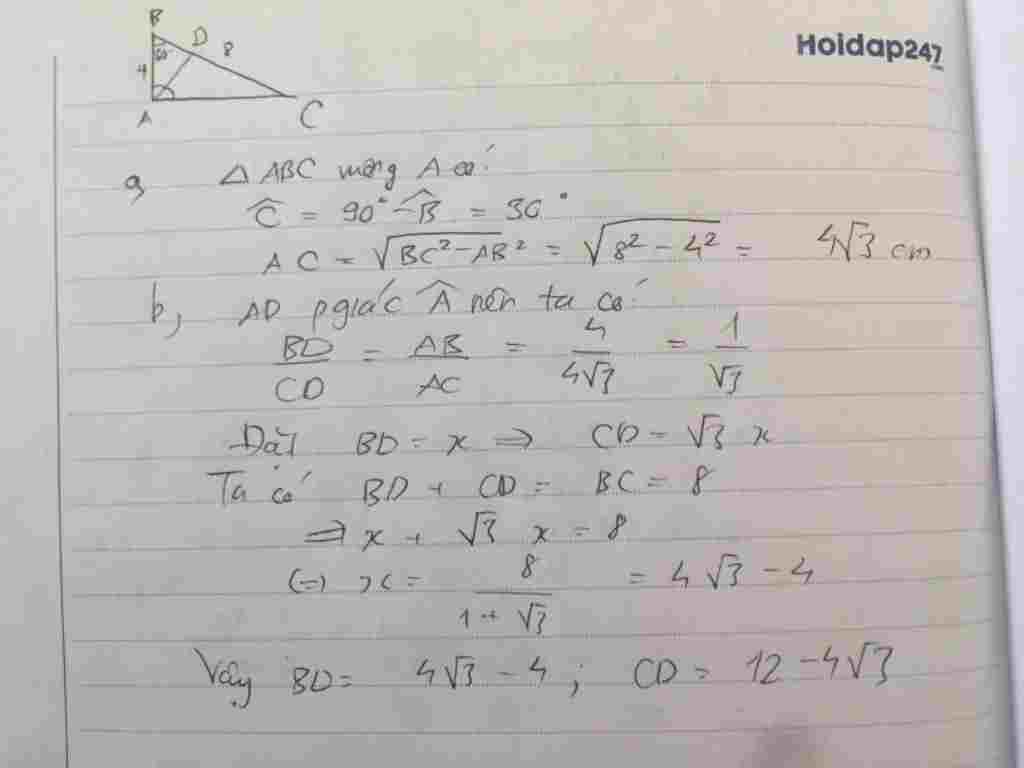 Hoidap247
B
60°
D
8
4
A
C
a, △ ABC vuông A có:
Ĉ = 90° - B̂ = 30°
AC = √(BC² - AB²) = √(8² - 4²) = 4√3 cm
b, AD pgiác Â nên ta có:
BD/CD = AB/AC = 4/4√3 = 1/√3
Đặt BD = x ⇒ CD = √3 x
Ta có BD + CD = BC = 8
⇒ x + √3 x = 8
(=) x = 8/(1 + √3) = 4√3 - 4
Vậy BD = 4√3 - 4 ; CD = 12 - 4√3